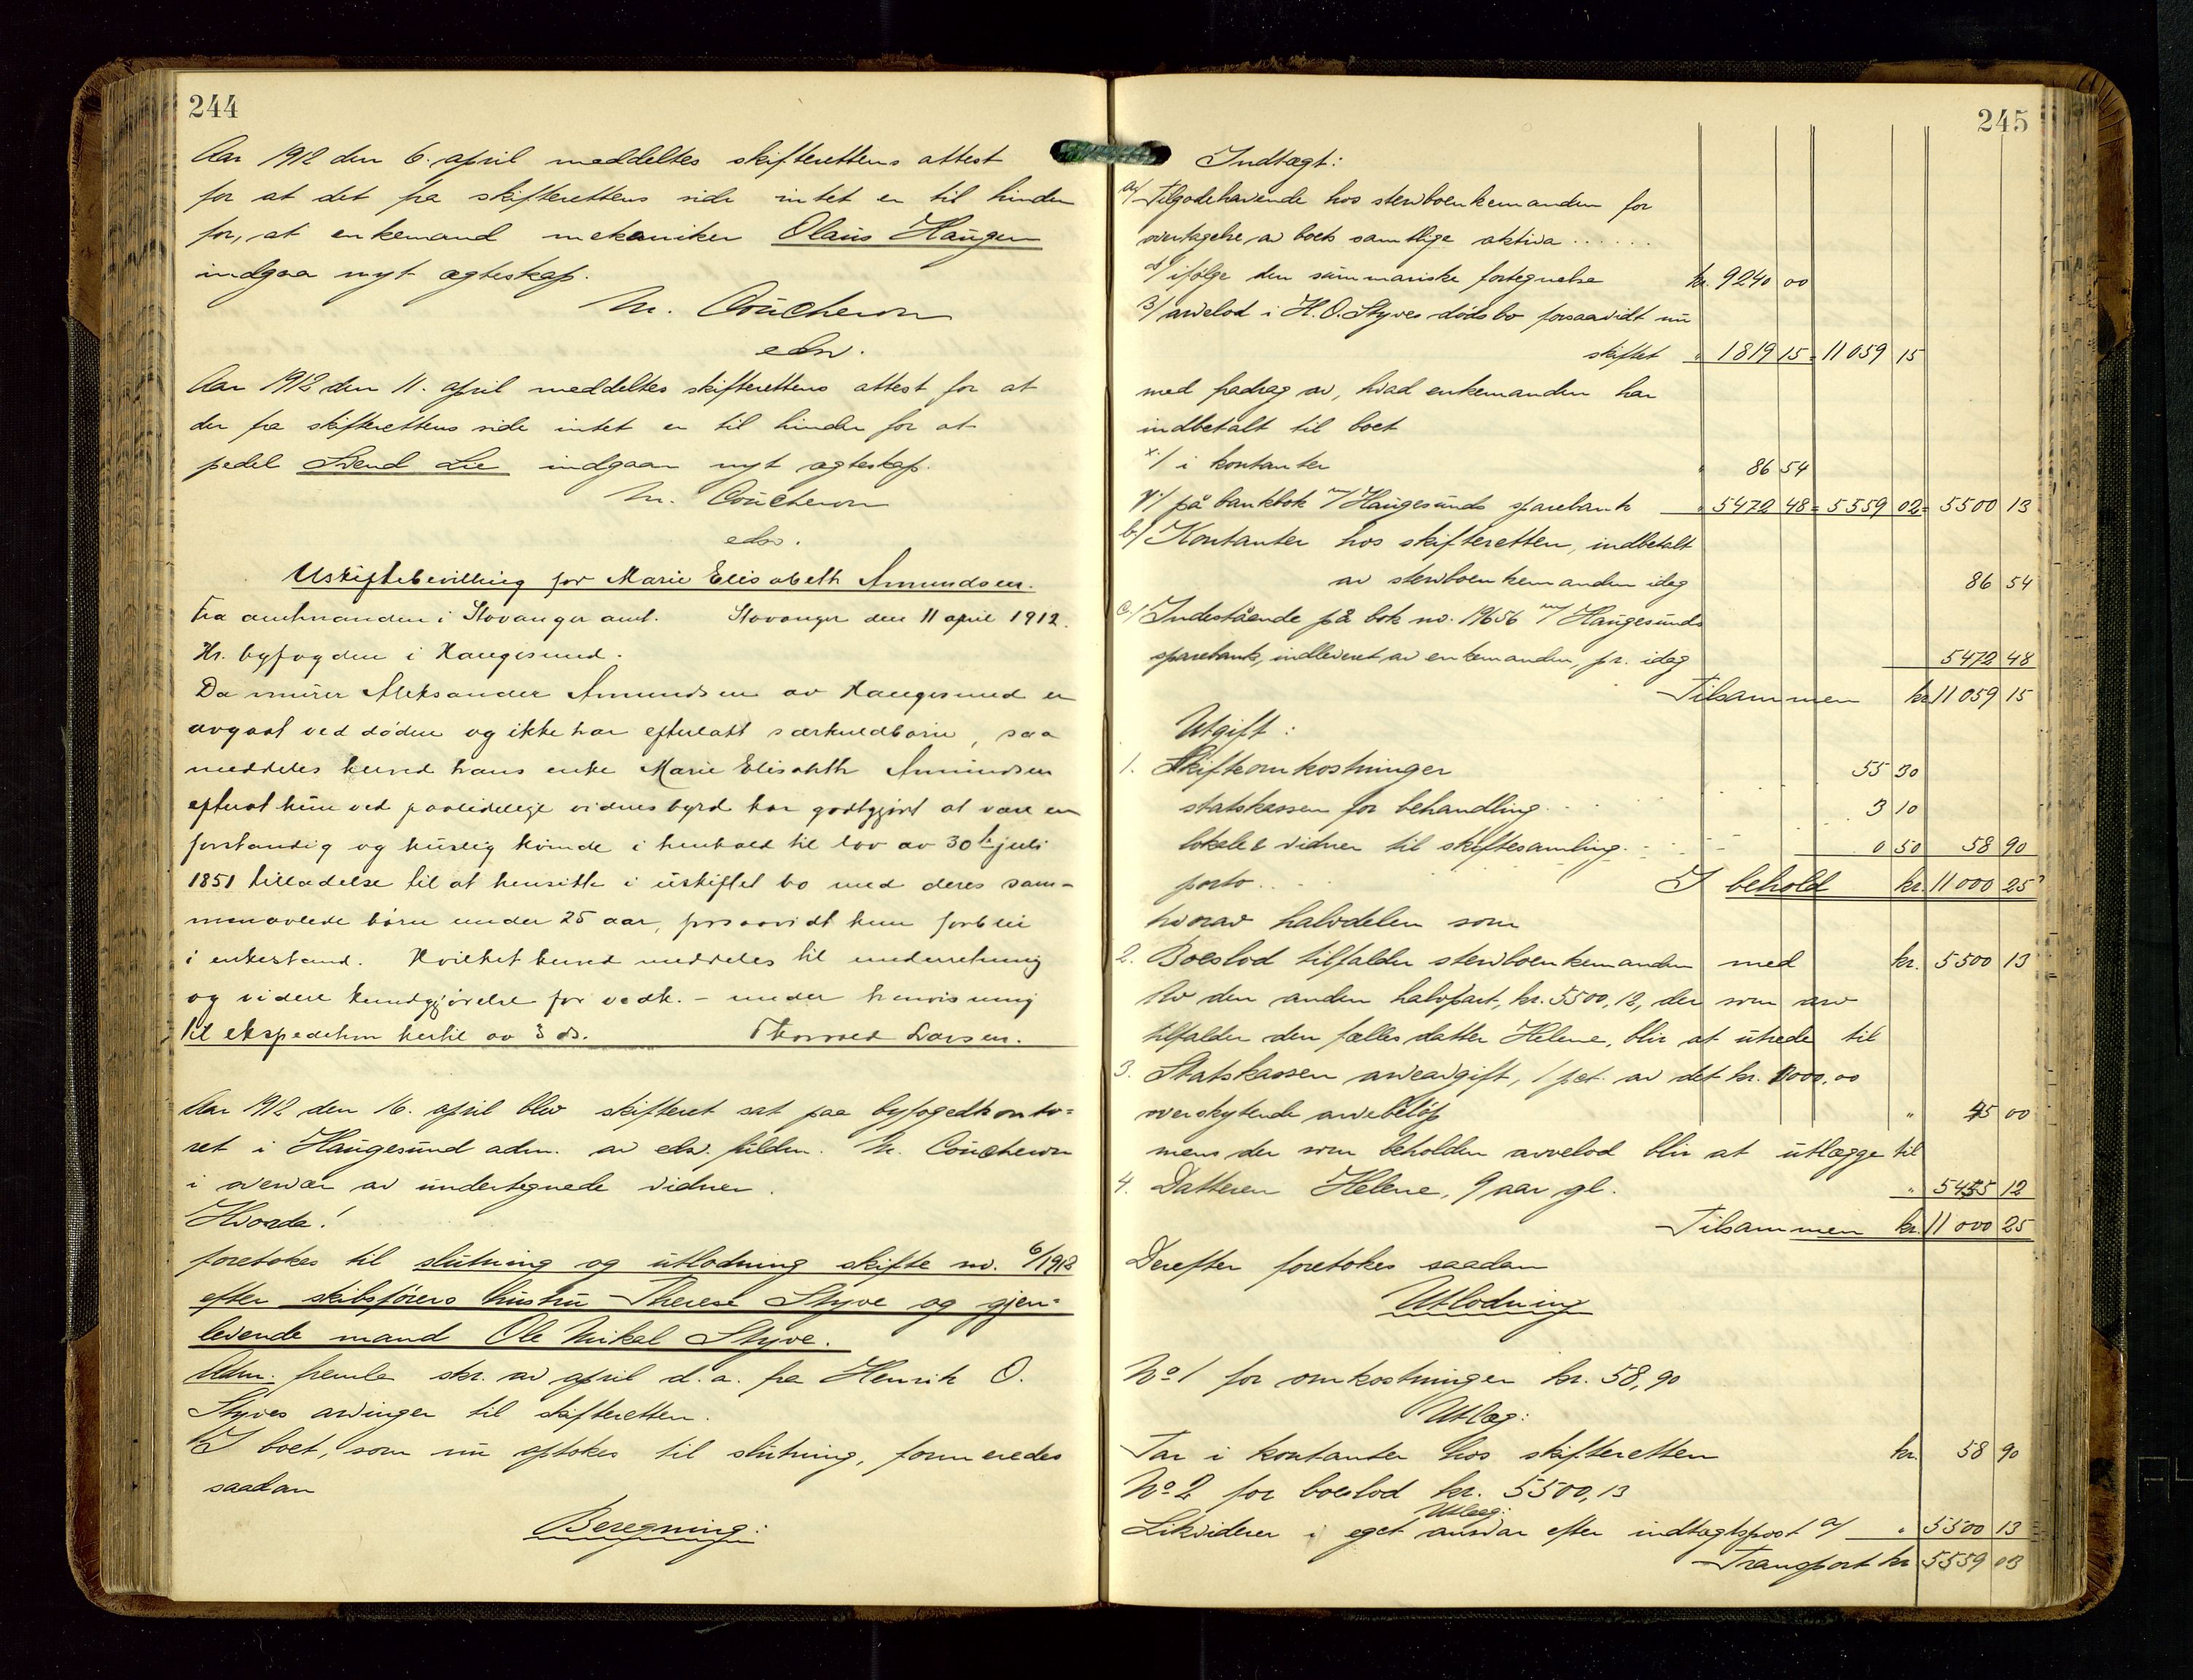 244
Aar 1912 den 6. april meddeltes skifterettens attest
for at det fra skifterettens side intet er til hinder
for, at enkemand mekaniker Olaus Haugen
indgaar nyt ægteskap.
M. Coucheron
edsv.
Aar 1912 den 11. april meddeltes skifterettens attest for at
der fra skifterettens side intet er til hinder for at
pedel Svend Lie indgaar nyt ægteskap.
M. Coucheron
edsv.
Uskiftebevilling for Marie Elisabeth Amundsen.
Fra amtmanden i Stavanger amt. Stavanger den 11 april 1912.
Hr. byfogden i Haugesund.
Da murer Aleksander Amundsen av Haugesund er
avgaat ved døden og ikke har efterlatt særkuldbarn, saa
meddeles herved hans enke Marie Elisabeth Amundsen
efterat hun ved paalidelige vidnesbyrd har godtgjort at være en
forstandig og huslig kvinde i henhold til lov av 30te juli
1851 tilladelse til at hensitte i uskiftet bo med deres sam-
menavlede børn under 25 aar, forsaavidt hun forblir
i enkestand. Hvilket herved meddeles til underretning
og videre kundgjørelse for vedk. - under henvisning
til ekspedition hertil av 3 ds. Thorvald Larsen.
Aar 1912 den 16. april blev skifteret sat paa byfogedkonto=
ret i Haugesund adm. av edsv. fuldm. M. Coucheron
i overvær av undertegnede vidner.
Hvorda!
foretokes til slutning og utlodning skifte no. 6/1912
efter skibsførers hustru Therese Styve og gjen=
levende mand Ole Mikal Styve.
Adm. fremla skr. av april d.a. fra Henrik O.
Styves arvinger til skifteretten.
I boet, som nu optokes til slutning, formeredes
saadan
Beregning:
245
Indtægt:
a/ Tilgodehavende hos stervboenkemanden for
overtagelse av boets samtlige aktiva ......
α/ ifølge den summariske fortegnelse kr. 9240 00
β/ arvelod i H.O. Styves dødsbo forsaavidt nu
skiftet " 1819 15 = 11 059 15
med fradrag av, hvad enkemanden har
indbetalt til boet
x/ i kontanter " 86 54
y/ på bankbok m/ Haugesunds sparebank " 5472 48 = 5559 02 = 5500 13
b/ Kontanter hos skifteretten, indbetalt
av stervboenkemanden idag 86 54
c/ Indestående på bok no. 19656 m/ Haugesunds
sparebank, indleveret av enkemanden, pr. idag 5472 48
Tilsammen kr. 11 059 15
Utgift:
1. Skifteomkostninger 55 30
statskassen for behandling 3 10
lokale & vidner til skiftesamling 0 50 58 90
porto..
I behold kr. 11 000 25
hvorav halvdelen som
2. Boeslod tilfalder stervboenkemanden med kr. 5500 13
Av den anden halvpart, kr. 5500,12, der som arv
tilfalder den fælles datter Helene, blir at utrede til
3. Statskassen arveavgift, 1 pct. av det kr. 1000,00
overskytende arvebeløp " 45 00
mens der som beholden arvelod blir at utlægge til
4. Datteren Helene, 9 aar gl. " 5455 12
Tilsammen kr. 11 000 25
Derefter foretokes saadan
Utlodning
No 1 for omkostninger kr. 58,90
Utlæg:
Tar i kontanter hos skifteretten kr. 58 90
No 2 for boeslod kr. 5500,13
Utlæg:
Likviderer i eget ansvar efter indtægtspost a/ " 5500 13
Transport kr 5559 03